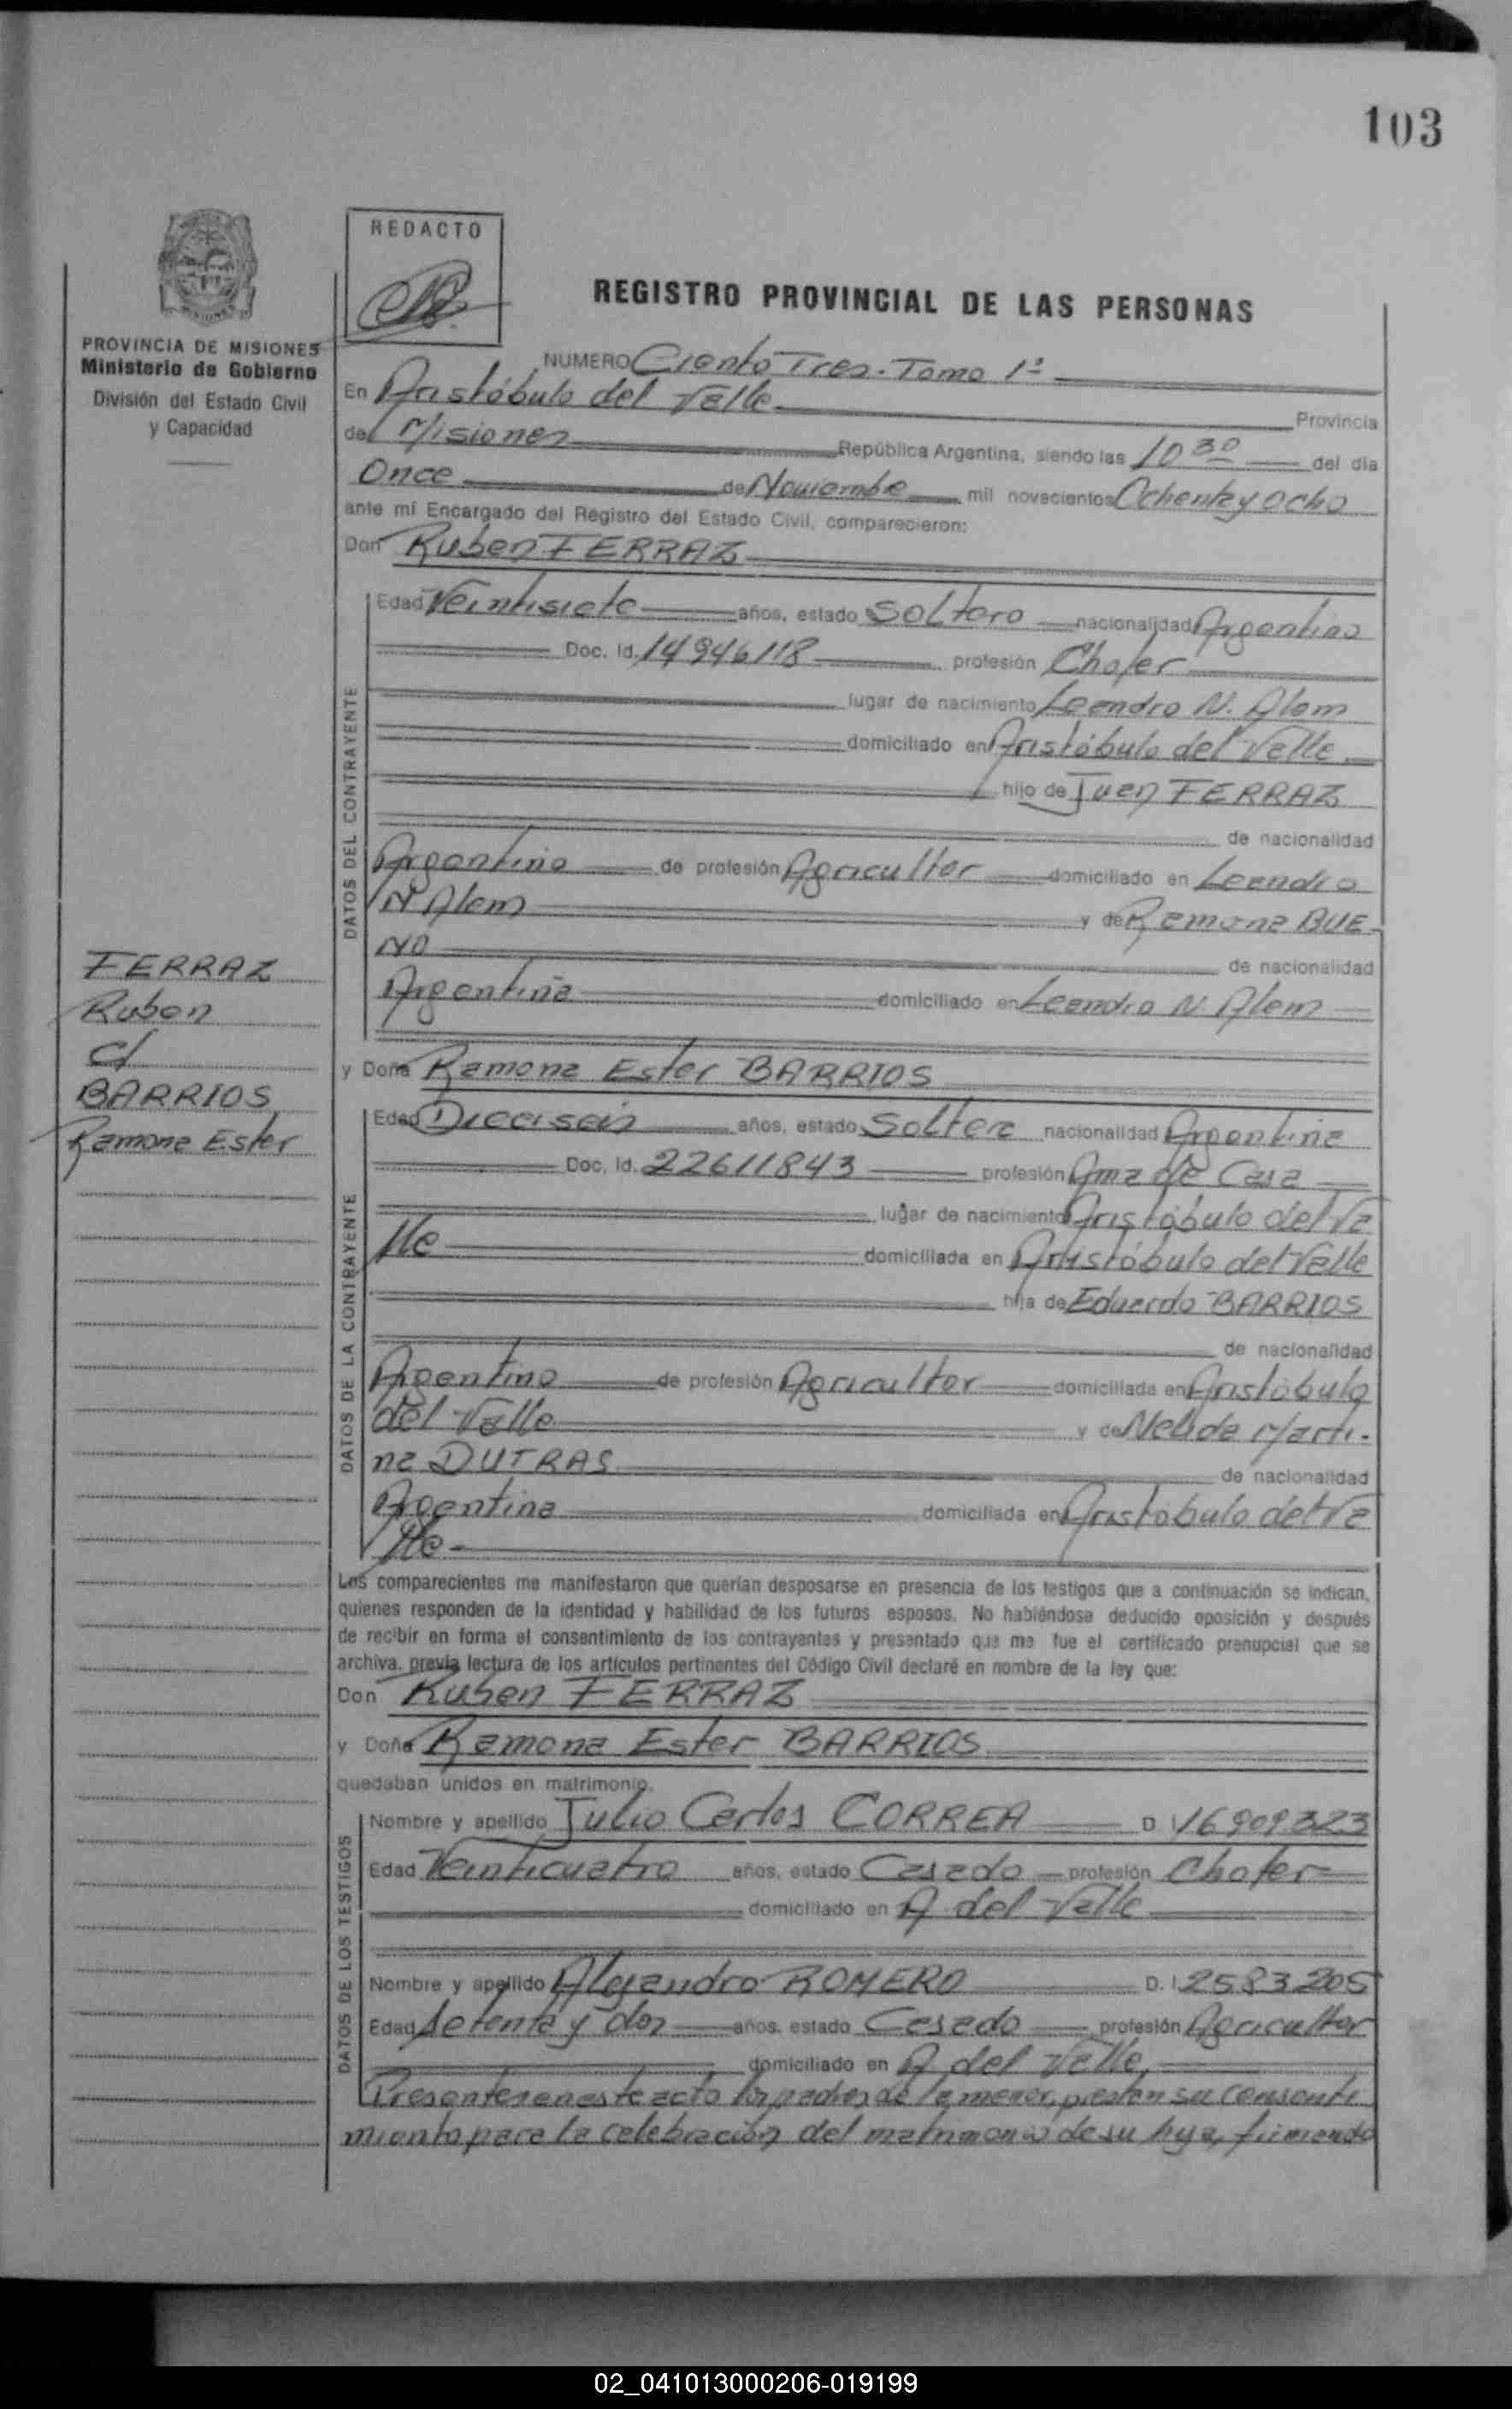 103
REDACTO
REGISTRO PROVINCIAL DE LAS PERSONAS
PROVINCIA DE MISIONES
Ministerio de Gobierno
División del Estado Civil
y Capacidad
NUMERO Ciento Tres. Tomo 1º
En Aristóbulo del Valle Provincia
de Misiones República Argentina, siendo las 10 30 del día
Once de Noviembre mil novecientos Ochenta y ocho
ante mí Encargado del Registro del Estado Civil, comparecieron:
Don Ruben FERRAZ
DATOS DEL CONTRAYENTE
Edad Veintisiete años, estado Soltero nacionalidad Argentino
Doc. Id. 14946118 profesión Chofer
lugar de nacimiento Leandro N. Alem
domiciliado en Aristóbulo del Valle
hijo de Juan FERRAZ
de nacionalidad
Argentino de profesión Agricultor domiciliado en Leandro
N Alem y de Ramona BUE
NO de nacionalidad
Argentina domiciliado en Leandro N. Alem
FERRAZ
Ruben
c/
BARRIOS
Ramona Ester
y Doña Ramona Ester BARRIOS
DATOS DE LA CONTRAYENTE
Edad Dieciseis años, estado Soltera nacionalidad Argentina
Doc. Id. 22611843 profesión Ama de Casa
lugar de nacimiento Aristóbulo del Va
lle domiciliada en Aristóbulo del Valle
hija de Eduardo BARRIOS
de nacionalidad
Argentino de profesión Agricultor domiciliada en Aristóbulo
del Valle y de Nelida Marti-
na DUTRAS de nacionalidad
Argentina domiciliada en Aristobulo del Va
lle-
Los comparecientes me manifestaron que querían desposarse en presencia de los testigos que a continuación se indican,
quienes responden de la identidad y habilidad de los futuros esposos. No habiéndose deducido oposición y después
de recibir en forma el consentimiento de los contrayentes y presentado que me fue el certificado prenupcial que se
archiva. previa lectura de los artículos pertinentes del Código Civil declaré en nombre de la ley que:
Don Ruben FERRAZ
y Doña Ramona Ester BARRIOS
quedaban unidos en matrimonio.
DATOS DE LOS TESTIGOS
Nombre y apellido Julio Carlos CORREA D I 16909323
Edad Veinticuatro años, estado Casado profesión Chofer
domiciliado en A. del Valle
Nombre y apellido Alejandro ROMERO D. I. 2583205
Edad Setenta y dos años. estado Casado profesión Agricultor
domiciliado en A del Valle
Presentes en este acto los padres de la menor, prestan su consenti
miento para la celebración del matrimonio de su hija, firmando
02_041013000206-019199